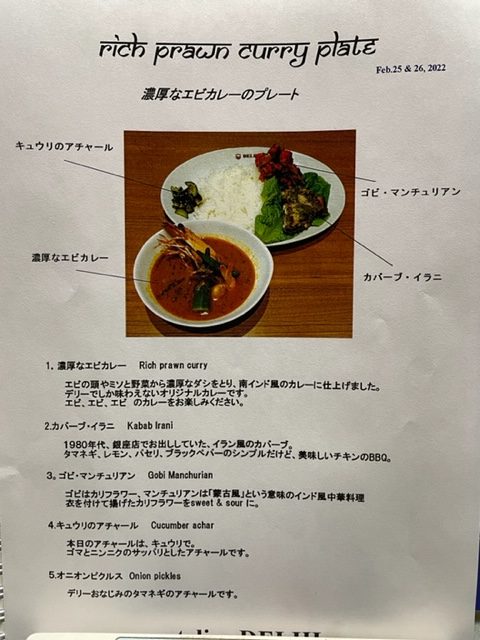 rich prawn curry plate
Feb.25 & 26, 2022
濃厚なエビカレーのプレート
キュウリのアチャール
DELHI
ゴビ・マンチュリアン
濃厚なエビカレー
カバーブ・イラニ
1. 濃厚なエビカレー Rich prawn curry
エビの頭やミソと野菜から濃厚なダシをとり、南インド風のカレーに仕上げました。
デリーでしか味わえないオリジナルカレーです。
エビ、エビ、エビ のカレーをお楽しみください。
2.カバーブ・イラニ Kabab Irani
1980年代、銀座店でお出ししていた、イラン風のカバーブ。
タマネギ、レモン、パセリ、ブラックペパーのシンプルだけど、美味しいチキンのBBQ。
3。ゴビ・マンチュリアン Gobi Manchurian
ゴビはカリフラワー、マンチュリアンは「蒙古風」という意味のインド風中華料理
衣を付けて揚げたカリフラワーをsweet & sour に。
4.キュウリのアチャール Cucumber achar
本日のアチャールは、キュウリで。
ゴマとニンニクのサッパリとしたアチャールです。
5.オニオンピクルス Onion pickles
デリーおなじみのタマネギのアチャールです。
DELHI